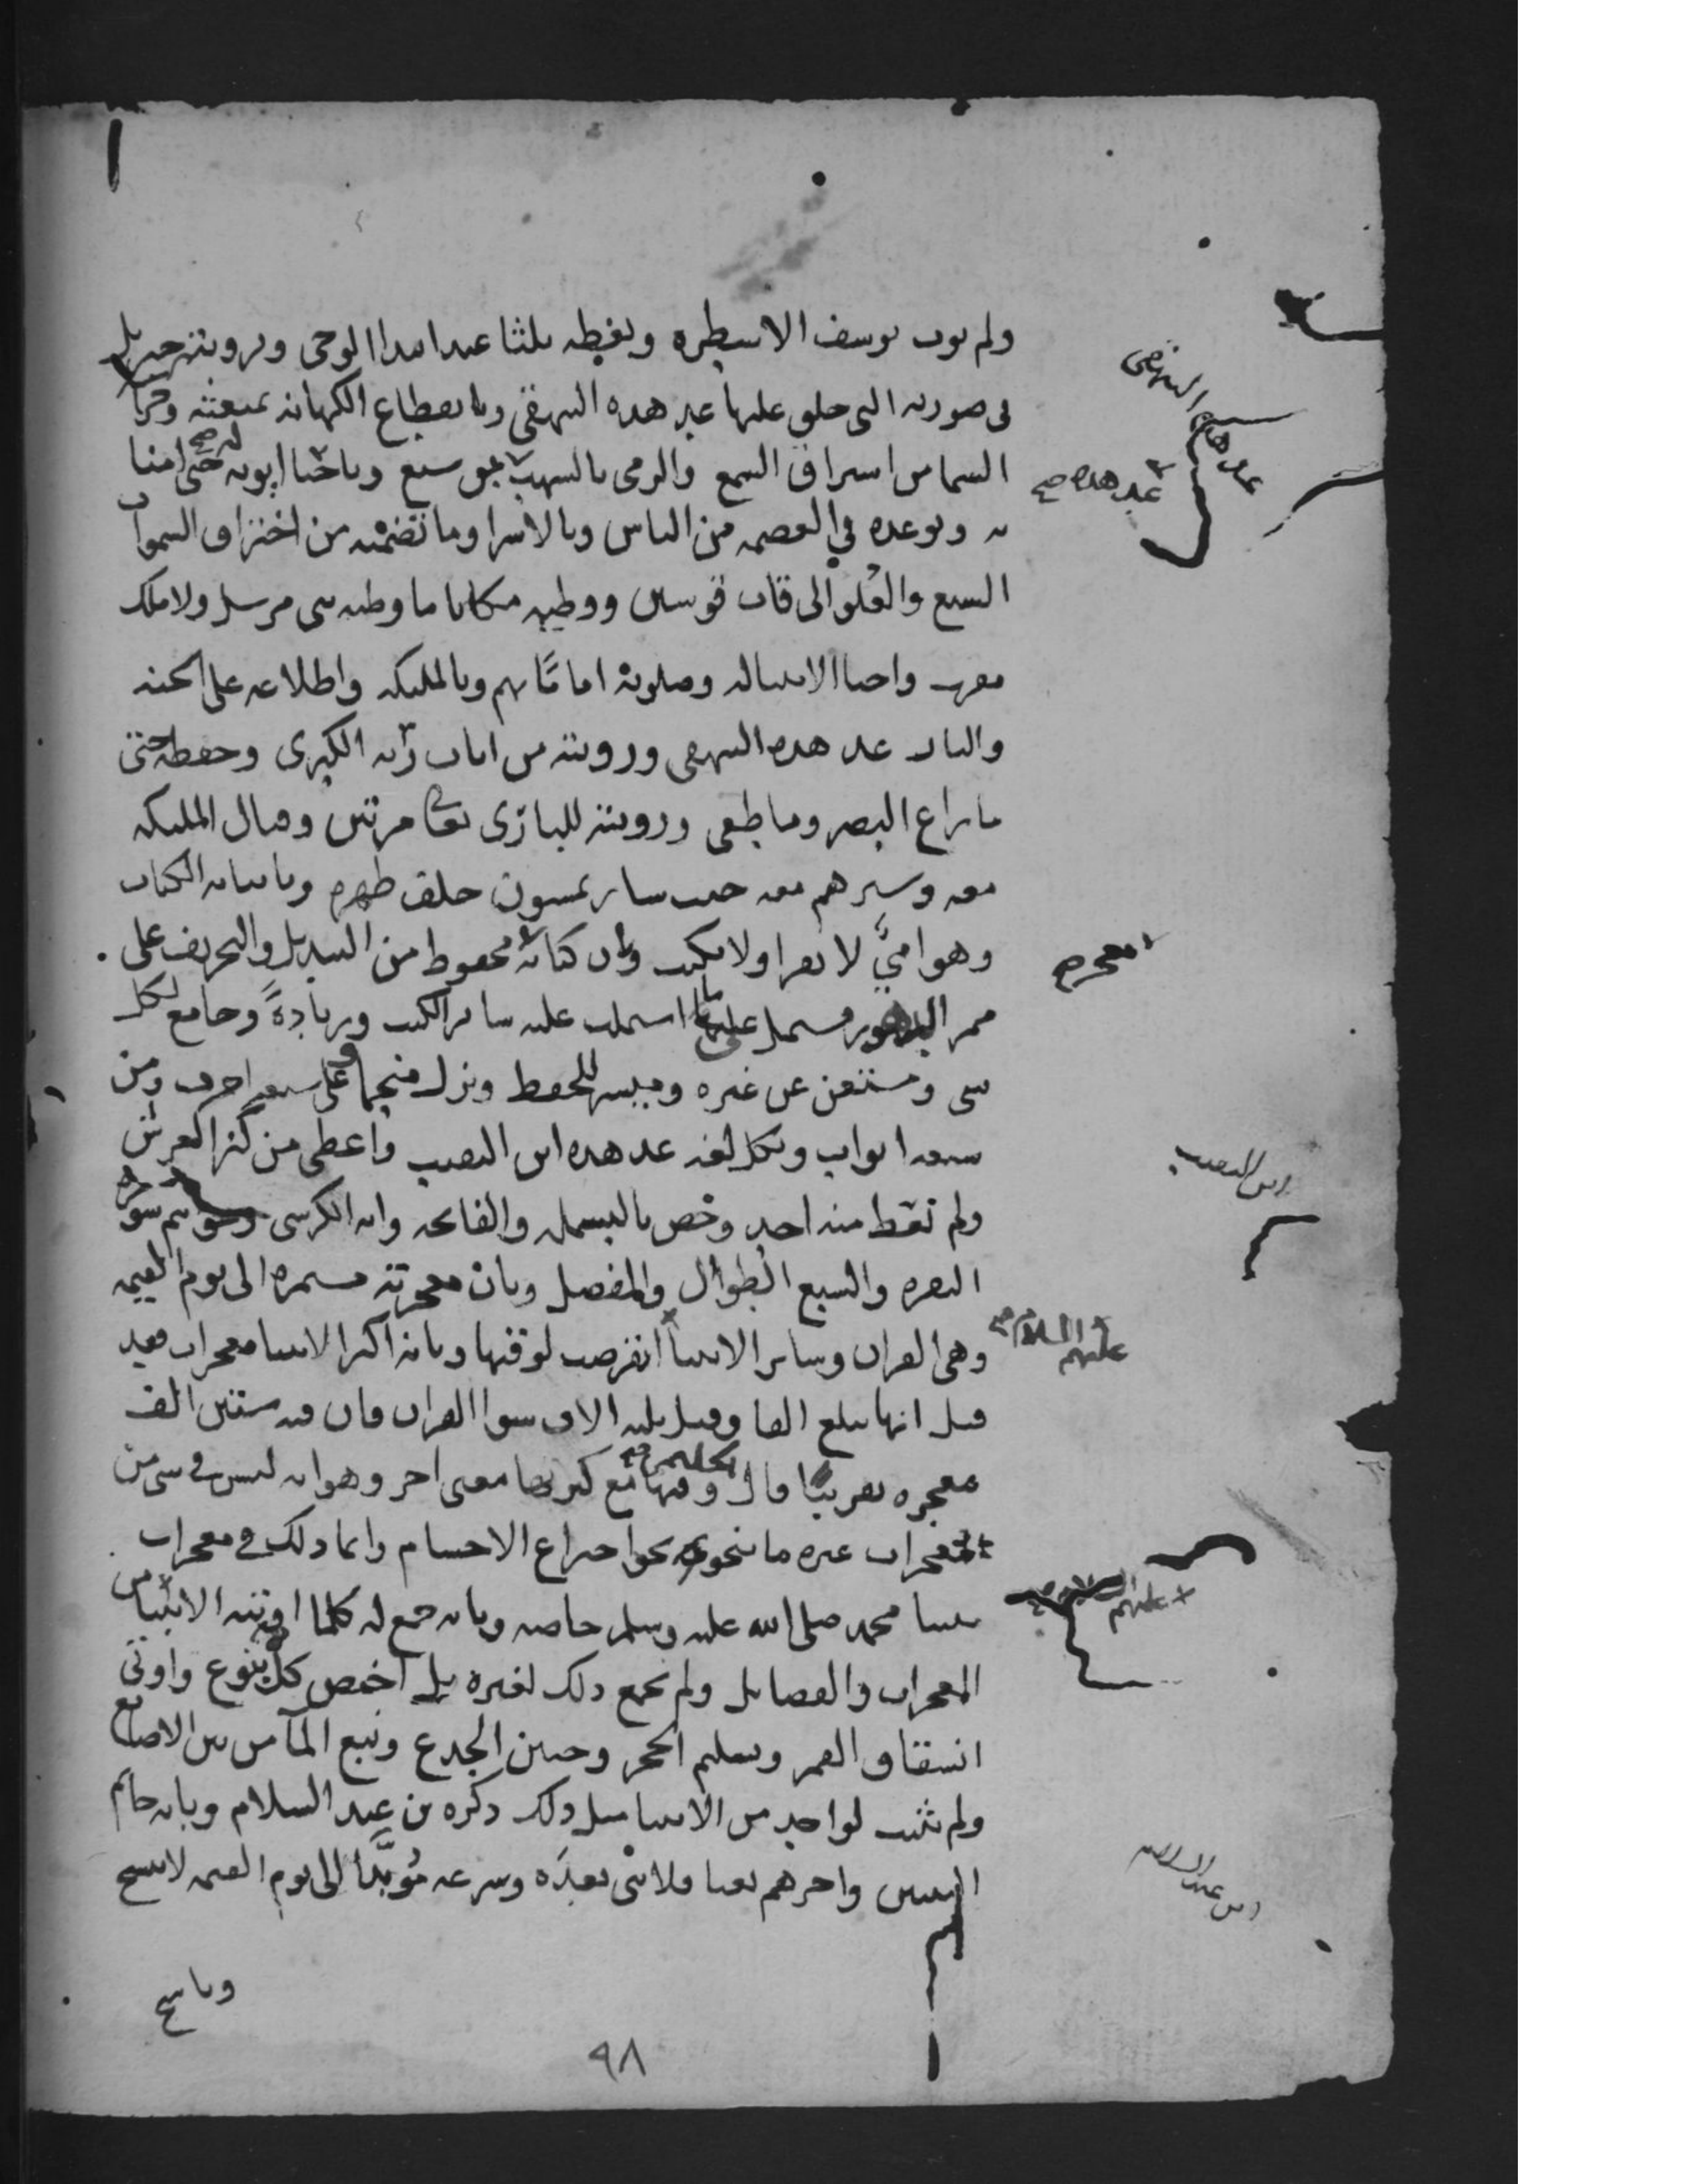 ولم يوت يوسف الا شطره وبغطه ثلثا عند ابتدا الوحى وبرويته جبريل
فى صورته التى خلق عليها عد هذه البيهقى وبانقطاع الكهانة لمبعثه وحراسة
السما من استراق السمع والرمى بالشهب عد هذه بن سبع وباحيا ابويه له حتى امنا
به وبوعده فى العصمة من الناس وبالاسرا وما تضمنه من اختراق السموات
السبع والعلو الى قاب قوسين ووطيه مكانا ما وطيه نبى مرسل ولا ملك
مقرب واحيا الانبيا له وصلوته اماما بهم وبالمليكة واطلاعه على الجنة
والنار عد هذه البيهقى ورويته من ايات ربه الكبرى وحفظه حتى
ما زاغ البصر وما طغى ورويته للبارى تعالى مرتين وقتال المليكة
معه وسيرهم معه حيث سار يمشون خلف ظهره وباتيانه الكتاب
وهو امىّ لا يقرا ولا يكتب وبان كتابه معجز محفوظ من التبديل والتحريف على
ممر الدهور مشتمل على ما اشتملت عليه ساير الكتب وزيادةً وجامع لكل
شى ومستغن عن غيره وميسر للحفظ ونزل منجما وعلى سبعة احرف ومن
سبعة ابواب وبكل لغة عد هذه ابن النقيب واعطى من كنز العرش
ولم يعط منه احد وخص بالبسملة والفاتحة واية الكرسى وخواتيم سورة
البقرة والسبع الطوال والمفصل وبان معجزته مستمرة الى يوم القيمة
وهى القران وساير الانبيا عليهم السلام انقرضت لوقتها وبانه اكثر الانبيا معجزات فقد
قيل انها تبلغ الفا وقيل ثلثة الاف سوا القران فان فيه ستين الف
معجزه تقريبًا قال الحليمى وفيها مع كثرتها معنى اخر وهو انه ليس فى شى من
معجزات غيره ما ينحو نحو اختراع الاجسام وانما ذلك فى معجزات
نبينا محمد صلى الله عليه وسلم خاصة وبانه جمع له كلما اوتيته الانبيا عليهم من
المعجزات والفضايل ولم يجمع ذلك لغيره بل اختص كل بنوع واوتى
انشقاق القمر وتسليم الحجر وحنين الجذع ونبع المآ من بين الاصابع
ولم يثبت لواحد من الانبيا مثل ذلك ذكره بن عبد السلام وبانه خاتم
النبيين واخرهم بعثا فلا نبى بعده وشرعه مُوبّدا الى يوم القيمة لا ينسخ
وناسخ
٩٨
عد هذه البيهقى
عد هذه صح
معجز صح
ابن النقيب
عليهم السلام صح
عليهم
ابن عبد السلام